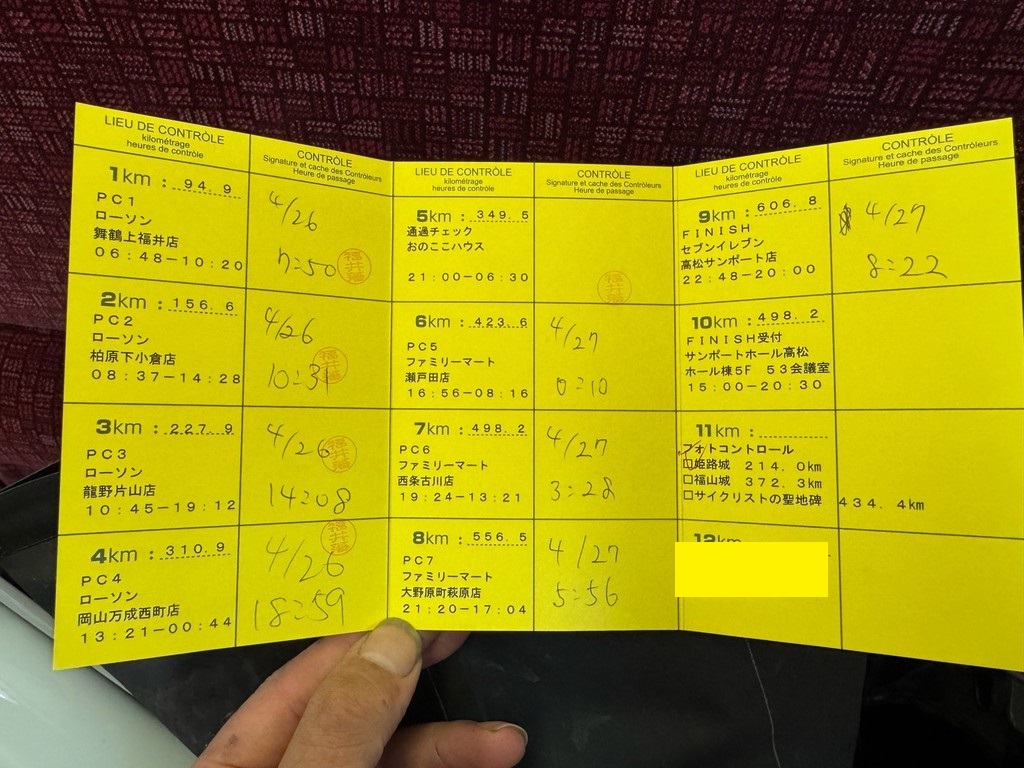 LIEU DE CONTRÔLE
kilométrage
heures de contrôle
CONTRÔLE
Signature et cache des Contrôleurs
Heure de passage
1km : 94.9
PC1
ローソン
舞鶴上福井店
06:48-10:20
4/26
7:50
2km : 156.6
PC2
ローソン
柏原下小倉店
08:37-14:28
4/26
10:31
3km : 227.9
PC3
ローソン
龍野片山店
10:45-19:12
4/26
14:08
4km : 310.9
PC4
ローソン
岡山万成西町店
13:21-00:44
4/26
18:59
LIEU DE CONTRÔLE
kilométrage
heures de contrôle
CONTRÔLE
Signature et cache des Contrôleurs
Heure de passage
5km : 349.5
通過チェック
おのここハウス
21:00-06:30
6km : 423.6
PC5
ファミリーマート
瀬戸田店
16:56-08:16
4/27
0:10
7km : 498.2
PC6
ファミリーマート
西条古川店
19:24-13:21
4/27
3:28
8km : 556.5
PC7
ファミリーマート
大野原町萩原店
21:20-17:04
4/27
5:56
LIEU DE CONTRÔLE
kilométrage
heures de contrôle
CONTRÔLE
Signature et cache des Contrôleurs
Heure de passage
9km : 606.8
FINISH
セブンイレブン
高松サンポート店
22:48-20:00
4/27
8:22
10km : 498.2
FINISH受付
サンポートホール高松
ホール棟5F 53会議室
15:00-20:30
11km :
フォトコントロール
□姫路城 214.0km
□福山城 372.3km
□サイクリストの聖地碑 434.4km